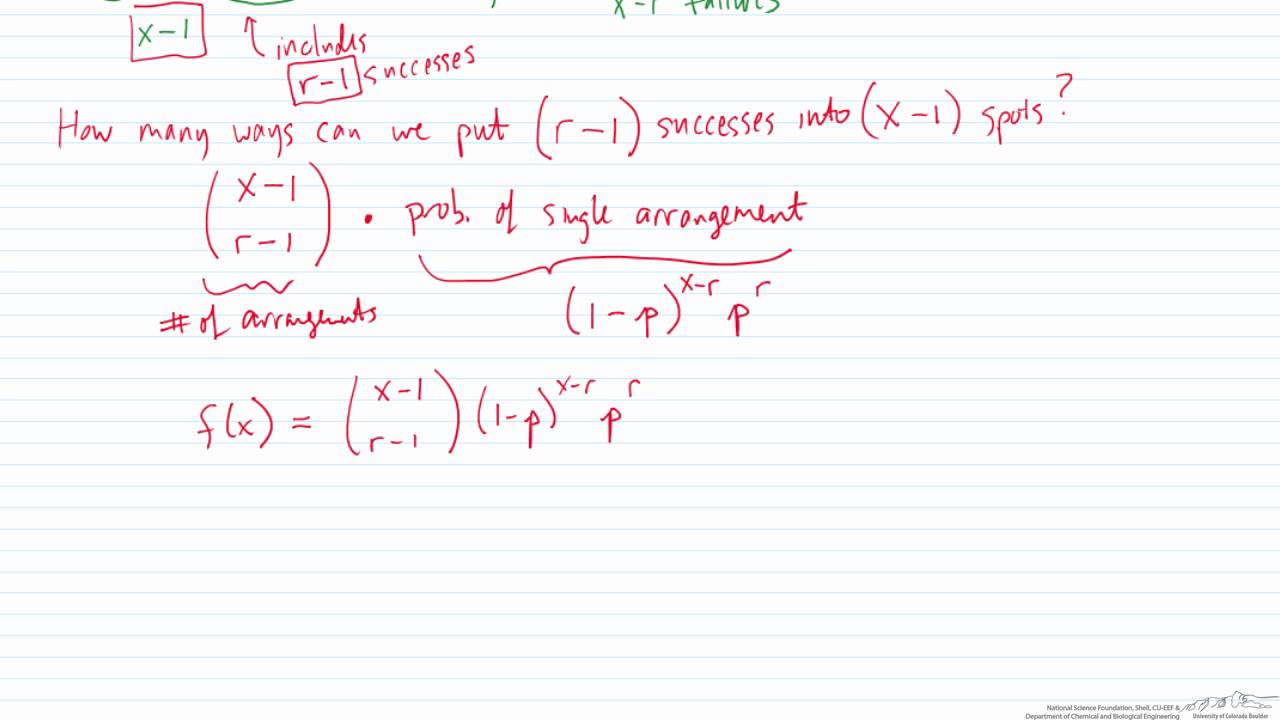 x-r failures
x-1
includes
r-1 successes
How many ways can we put (r-1) successes into (x-1) spots?
(x-1
r-1) • prob. of single arrangement
# of arrangements
(1-p)^{x-r} p^r
f(x) = (x-1
r-1) (1-p)^{x-r} p^r
National Science Foundation, Shell, CU-EEF &
Department of Chemical and Biological Engineering
University of Colorado Boulder